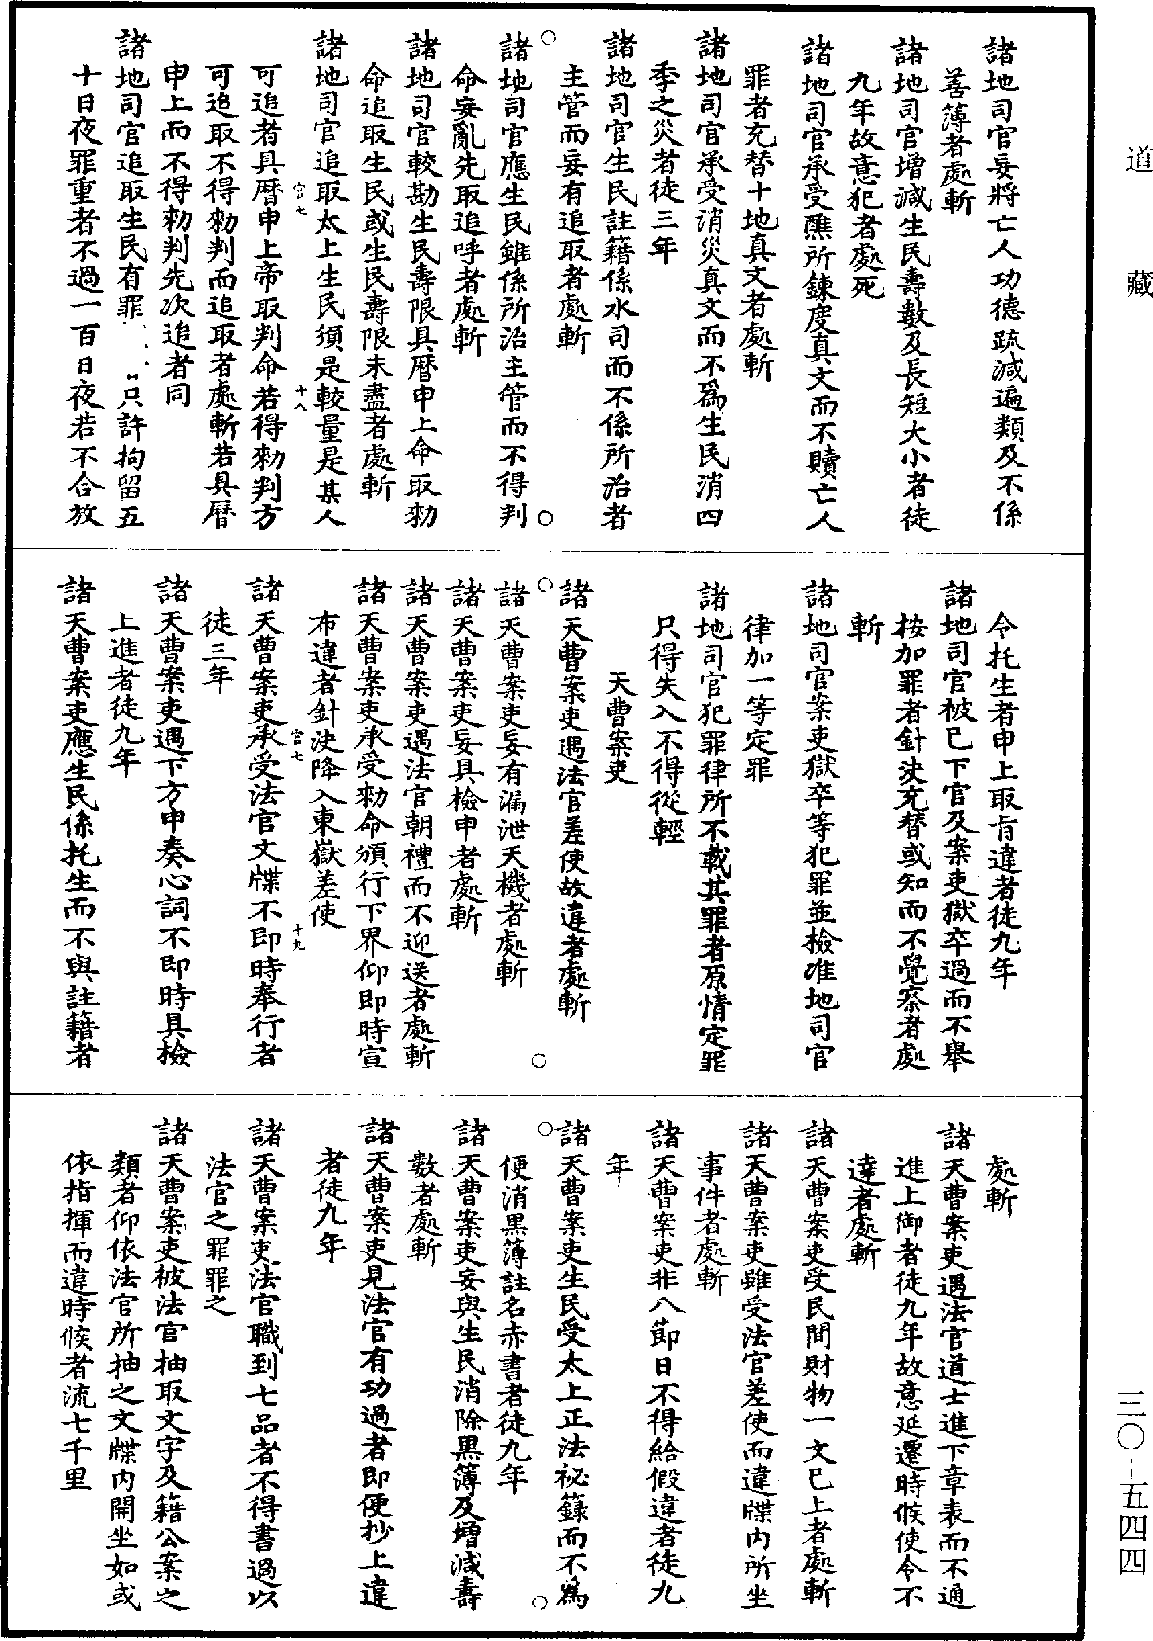 道藏
諸地司官妄將亡人功德䟽減遍類及不係
善薄者處斬
諸地司官增減生民壽數及長短大小者徒
九年故意犯者處死
諸地司官承受醮所鍊度真文而不贖亡人
罪者充替十地真文者處斬
諸地司官承受消災真文而不爲生民消四
季之災者徒三年
諸地司官生民註籍係水司而不係所治者
主管而妄有追取者處斬
諸地司官應生民雖係所治主管而不得判
命妄亂先取追呼者處斬
諸地司官較勘生民壽限具曆申上命取勑
命追取生民或生民壽限未盡者處斬
諸地司官追取太上生民須是較量是某人
可追者具曆申上帝取判命若得勑判方
宫七
十八
可追取不得勑判而追取者處斬若具曆
申上而不得勑判先次追者同
諸地司官追取生民有罪只許拘留五
十日夜罪重者不過一百日夜若不合放
令托生者申上取旨違者徒九年
諸地司官被已下官及案吏獄卒過而不舉
按加罪者針决充替或知而不覺察者處
斬
諸地司官案吏獄卒等犯罪並檢准地司官
律加一等定罪
諸地司官犯罪律所不載其罪者原情定罪
只得失入不得從輕
天曹案吏
諸天曹案吏遇法官差使故違者處斬
諸天曹案吏妄有漏泄天機者處斬
諸天曹案吏妄具檢申者處斬
諸天曹案吏遇法官朝禮而不迎送者處斬
諸天曹案吏承受勑命頒行下界仰即時宣
布違者針决降入東嶽差使
宫七
十九
諸天曹案吏承受法官文牒不即時奉行者
徒三年
諸天曹案吏遇下方申奏心詞不即時具檢
上進者徒九年
諸天曹案吏應生民係托生而不與註籍者
處斬
諸天曹案吏遇法官道士進下章表而不通
進上御者徒九年故意延遷時候使令不
達者處斬
諸天曹案吏受民間財物一文已上者處斬
諸天曹案吏雖受法官差使而違牒内所坐
事件者處斬
諸天曹案吏非八節日不得給假違者徒九
年
諸天曹案吏生民受太上正法祕籙而不爲
便消黑簿註名赤書者徒九年
諸天曹案吏妄與生民消除黑簿及增減壽
數者處斬
諸天曹案吏見法官有功過者即便抄上違
者徒九年
諸天曹案吏法官職到七品者不得書過以
法官之罪罪之
諸天曹案吏被法官抽取文字及籍公案之
類者仰依法官所抽之文牒内開坐如或
依指揮而違時候者流七千里
三〇-五四四